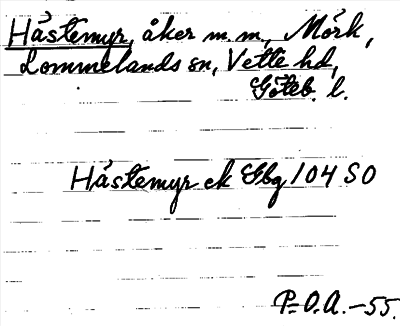 Håstemyr, åker m.m., Mörk,
Lommelands sn, Vette hd,
Göteb. l.
Håstemyr ek Gbg 104 SO
P.O.A. -55.